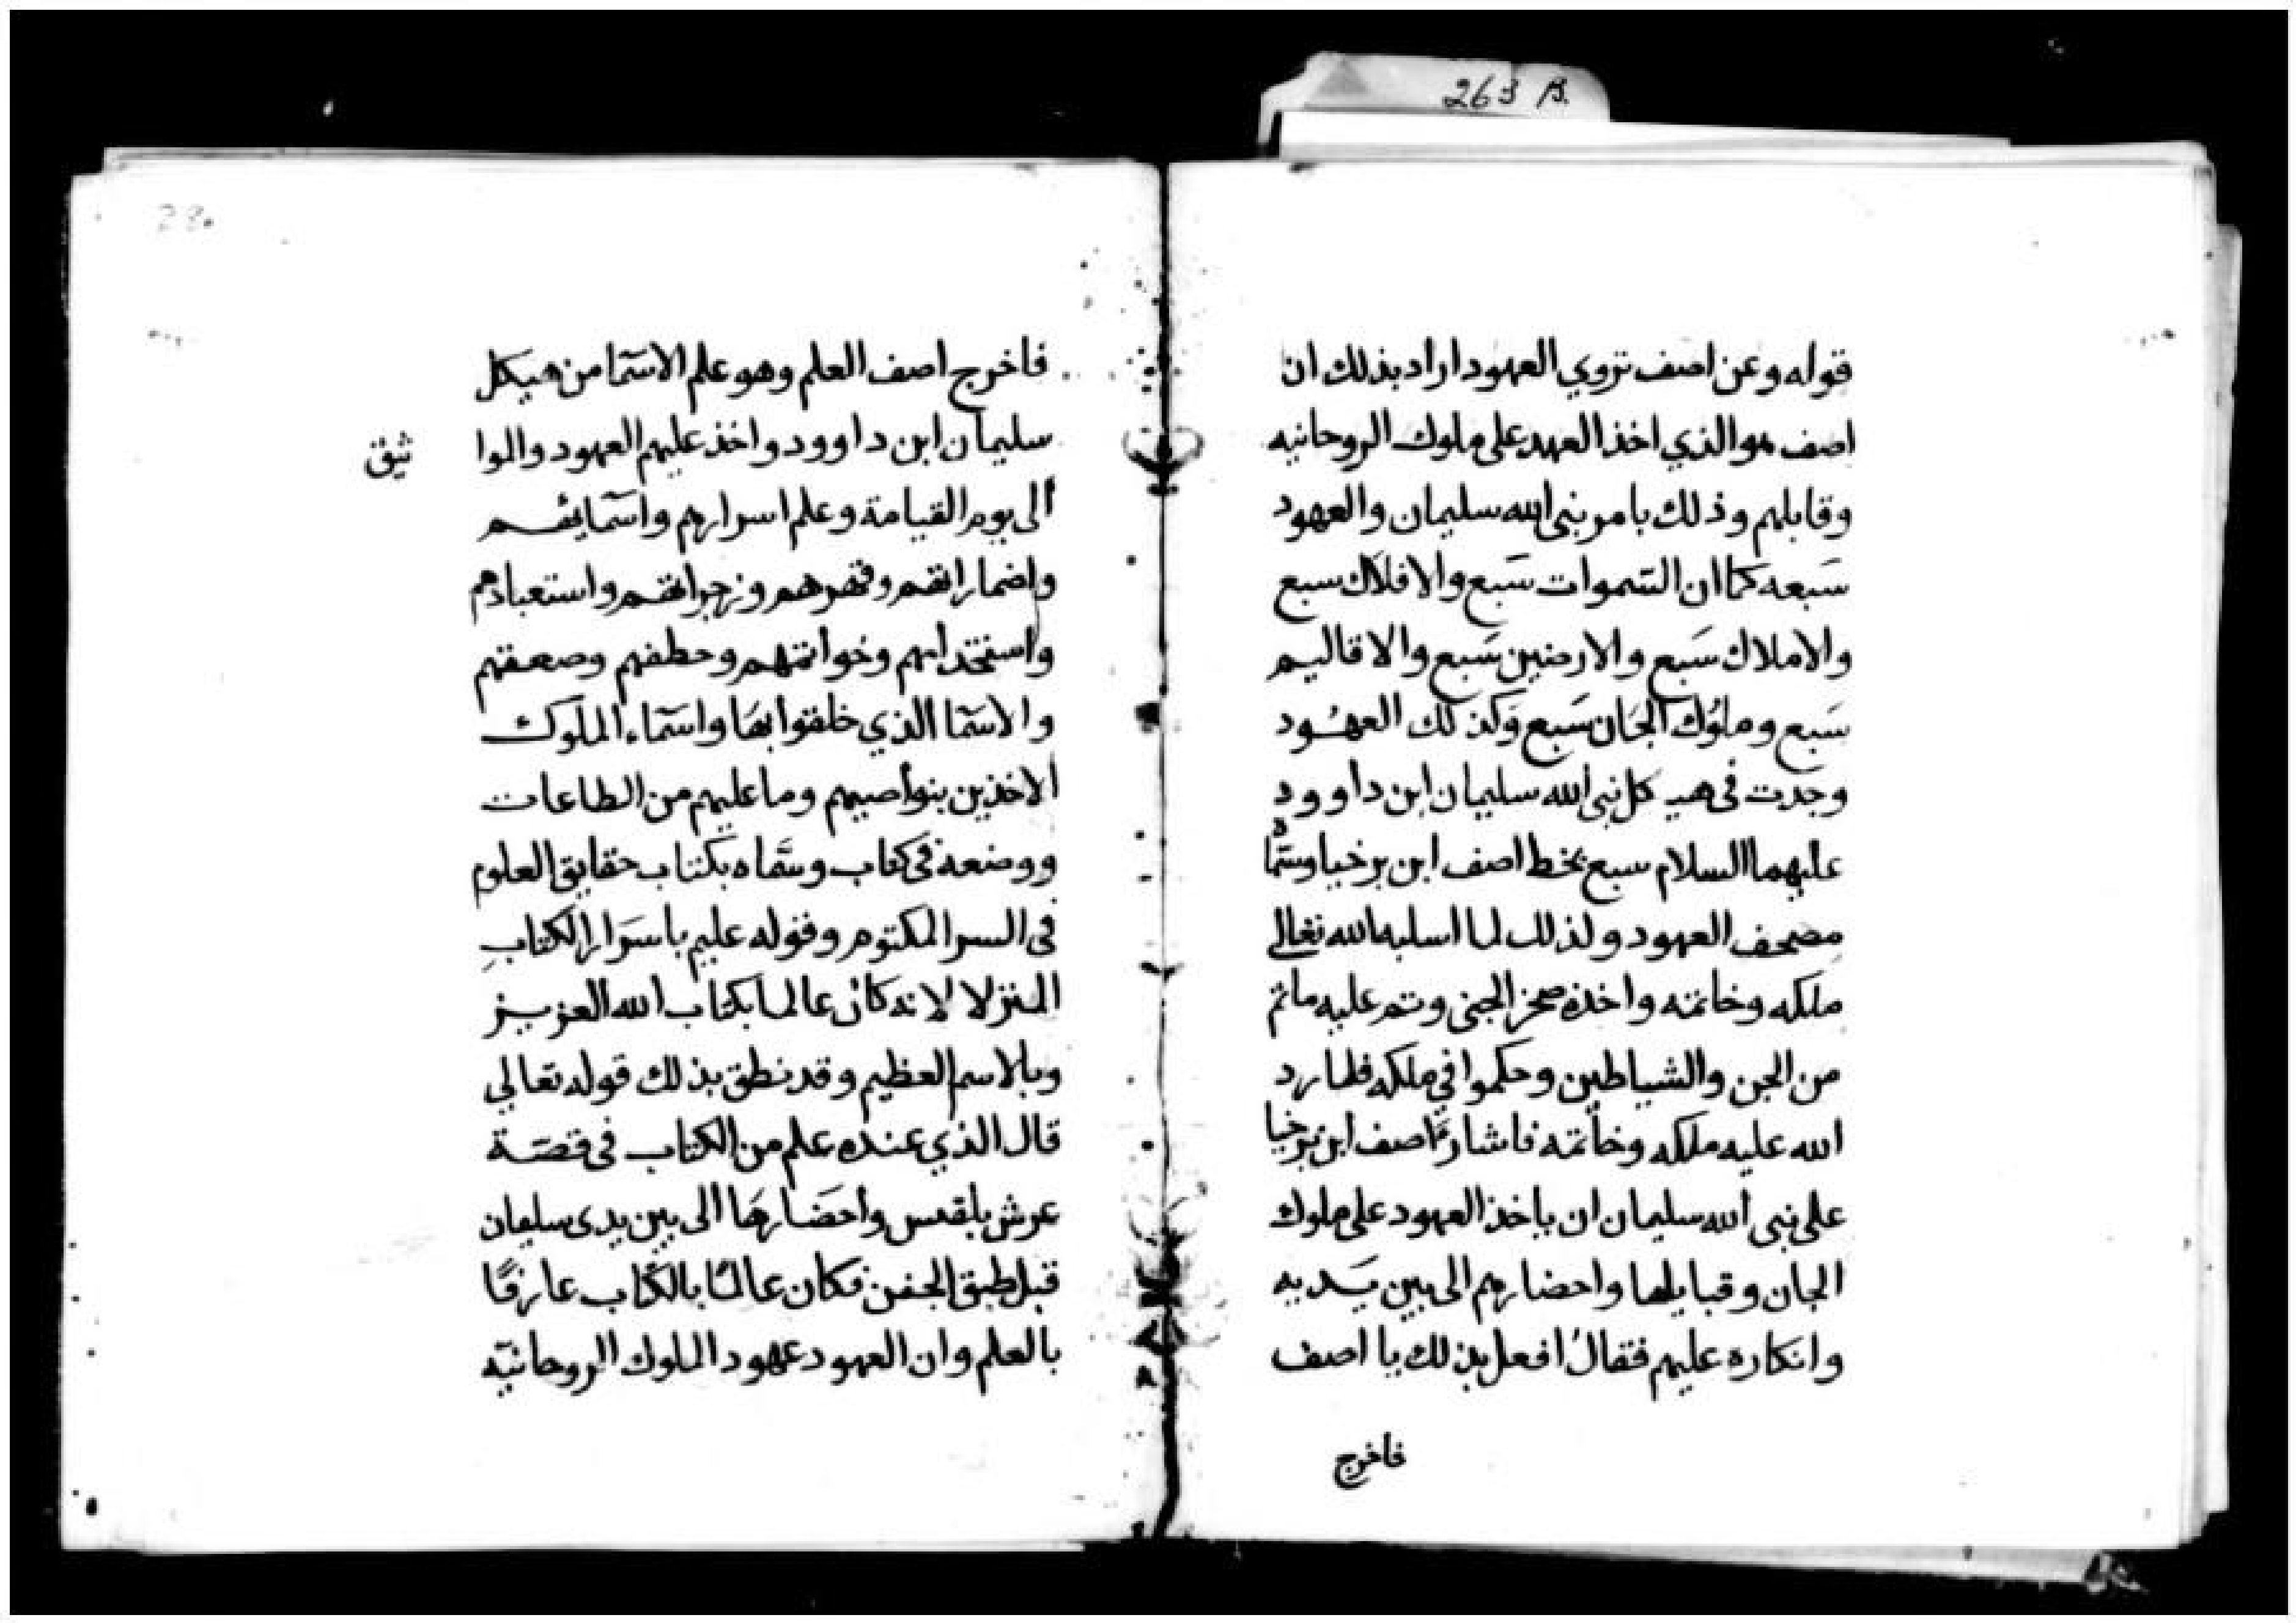 263 B.
قوله وعن اصف تروي العهود اراد بذلك ان
اصف هو الذي اخذ العهد على ملوك الروحانيه
وقابلهم وذلك بامر بنى الله سليمان والعهود
سَبعه كما ان السّموات سَبع والافلاك سبع
والاملاك سَبع والارضين سَبع والاقاليم
سَبع وملوُك الجَان سَبع وَكذلك العهُود
وجدت فى هيكل نبى الله سليمان ابن داوود
عليهما السلام سبع بخط اصف ابن برخيا وسمّاه
مصحف العهود ولذلك لما اسلبه الله تعالى
ملكه وخاتمه واخذه صخر الجنى وتم عليه ما تم
من الجن والشياطين وحكموا في ملكه فلما رد
الله عليه ملكه وخاتمه فاشار اصف ابن برخيا
على نبى الله سليمان ان ياخذ العهود على ملوك
الجان وقبايلها واحضارهم الى بين يَديه
وانكاره عليهم فقالُ افعل بذلك يا اصف
فاخرج
28.
فاخرج اصف العلم وهو علم الاسّما من هيكل
سليمان ابن داوود واخذ عليهم العهود والموا
ثيق
الى يوم القيامة وعلم اسرارهم واسّمايهم
واضماراتهم وقهرهم وزجراتهم واستعبادهم
واستخدامهم وخواتمهم وخطفهم وصعقتهم
والاسّما الذي خلقوا بهَا واسّماء الملوك
الاخذين بنواصيهم وما عليهم من الطاعات
ووضعه فى كتاب وسَّماه بكتاب حقايق العلوم
فى السر المكتوم وقوله عليم باسرَار الكتابِ
المنزلا لانه كان عالما بكتاب الله العزيز
وبالاسم العظيم وقد نطق بذلك قوله تعالي
قال الذي عنده علم من الكتاب فى قصّة
عرش بلقيس واحضَارهَا الى بين يدى سليمان
قبل طبق الجفن فكان عالمًا بالكتاب عارفًا
بالعلم وان العهود عهود الملوك الروحانيّه